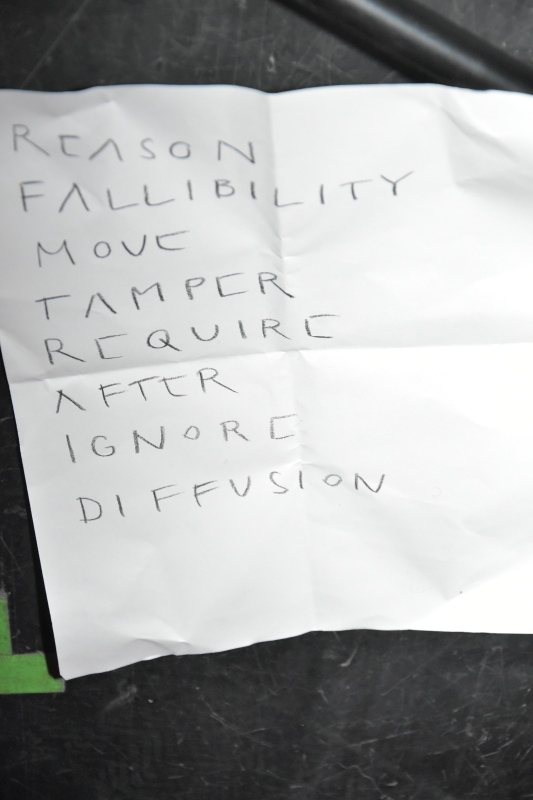 REASON
FALLIBILITY
MOVE
TAMPER
REQUIRE
AFTER
IGNORE
DIFFUSION